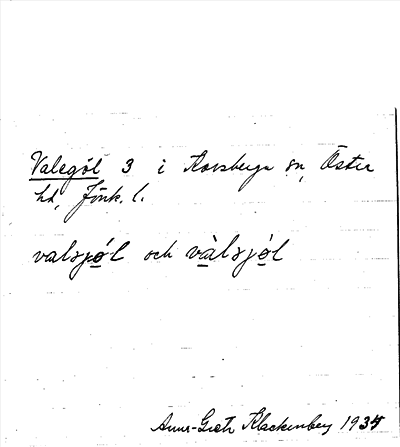 Valegöl 3 i Korsberga sn, Östra
hd, Jönk. l.
valsjó̲l och và̲lsjò̲l
Anna-Greta Klackenberg 1935